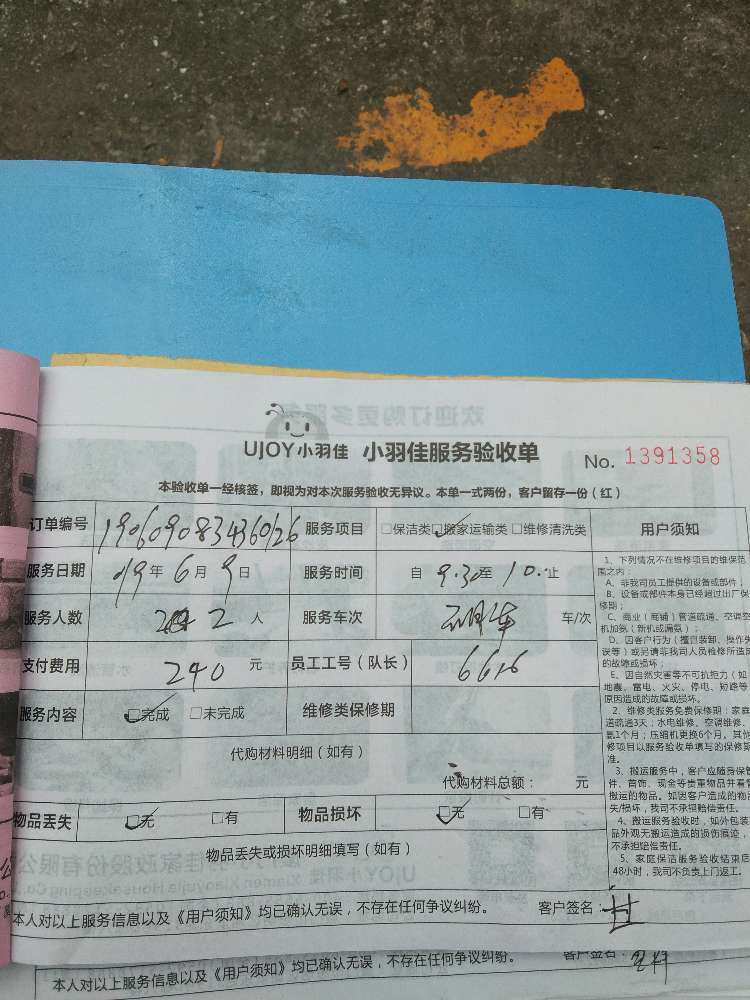 UJOY小羽佳 小羽佳服务验收单 No. 1391358
本验收单一经核签，即视为对本次服务验收无异议。本单一式两份，客户留存一份（红）
订单编号 1906090834360126 服务项目 □保洁类□搬家运输类 □维修清洗类 用户须知
服务日期 19年 6月 9日 服务时间 自 9.30至 10.止
服务人数 2人 服务车次 车/次
支付费用 240 元 员工工号（队长） 6616
服务内容 □完成 □未完成 维修类保修期
代购材料明细（如有）
代购材料总额： 元
物品丢失 □无 □有 物品损坏 □无 □有
物品丢失或损坏明细填写（如有）
本人对以上服务信息以及《用户须知》均已确认无误，不存在任何争议纠纷。 客户签名：
本人对以上服务信息以及《用户须知》均已确认无误，不存在任何争议纠纷。 客户签名：
1、下列情况不在维修项目的维保范
围之内：
A、非我司员工提供的设备或部件；
B、设备或部件本身已经超过出厂保
修期；
C、商业（商铺）管道疏通、空调空
机加氨（新机或漏氨）；
D、因客户行为（擅自装卸、操作失
误等）或另请非我司人员检修所造成
的故障或损坏；
E、因自然灾害等不可抗拒力（如
地震、雷电、火灾、停电、短路等
原因造成的故障或损坏。
2、维修类服务免费保修期：家庭
道疏通3天；水电维修、空调维修、
氨1个月；压缩机更换6个月。其他
修项目以服务验收单填写的保修期
准。
3、搬运服务中，客户应随身保管
件、首饰、现金等贵重物品并看管
搬运的物品。如因客户造成的物品
失/损坏，我司不承担赔偿责任。
4、搬运服务验收时，如外包装
品外观无搬运造成的损伤痕迹，
不承担赔偿责任。
5、家庭保洁服务验收结束后
48小时，我司不负责上门返工。